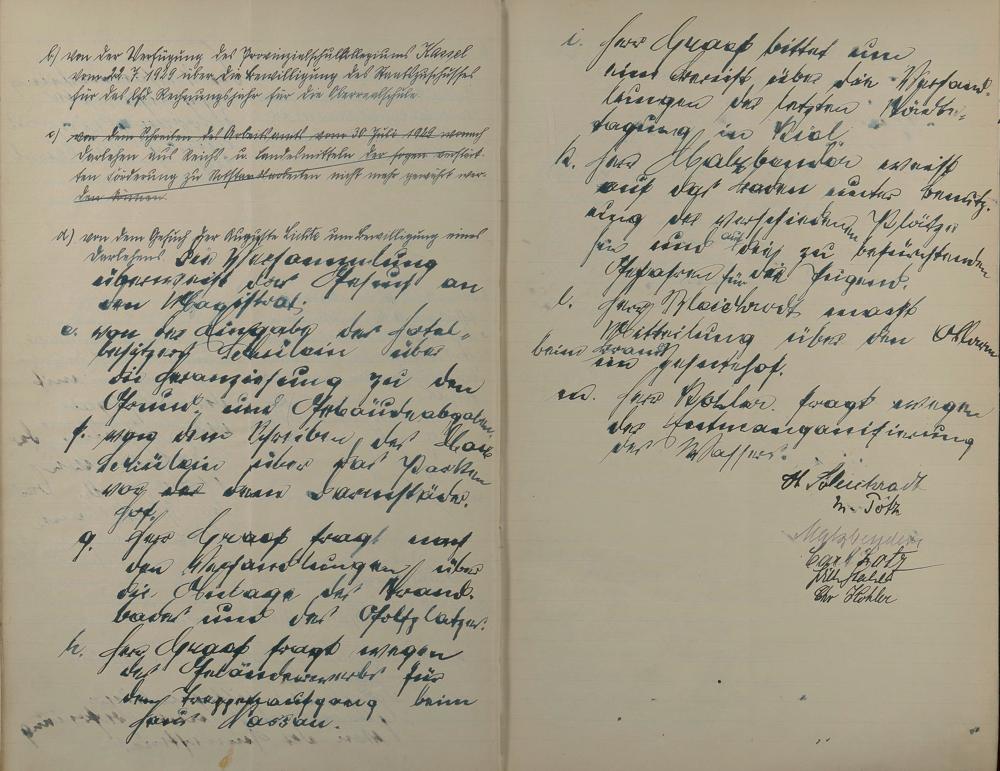 b) von der Verfügung des Provinzialschulkollegiums Kassel
vom 22.7.1929 über die Bewilligung des Staatszuschusses
für das lfd Rechnungsjahr für die Oberrealschule
c) von dem Schreiben des Arbeitsamts vom 30 Juli 1929 wonach
Darlehen aus Reichs- u. Landesmitteln der sogen. verstärk-
ten Förderung zu Notstandsarbeiten nicht mehr gewährt wer-
den können.
d) von dem Gesuch der Auguste um Bewilligung eines
Darlehens Die Versammlung
überweist das Gesuch an
den Magistrat.
e. von der Eingabe des Hotel-
besitzers Schülein über
die Heranziehung zu den
Grund- und Gebäudeabgaben.
f. von dem Schreiben des Max
Schülein über das Parken
vor der dem Darmstädter
Hof.
g. Herr Graef fragt nach
den Verhandlungen über
die Anlage des Strand-
bades und des Golfplatzes.
h. Herr Graef fragt wegen
des Geländeerwerbs für
den Treppenaufgang beim
Haus Nassau.
i. Herr Graef bittet um
ein Bericht über die Verhand-
lungen der letzten Städte-
tagung in Kiel
k. Herr Malzbender weist
auf das Baden unter Benutz-
ung der verschiedenen Plätze
hin und auf die zu befürchtenden
Gefahren für die Jugend.
l. Herr Schleichrodt macht
Mitteilung über den Alarm
beim Brand
im Zehntenhof.
m. Herr Kohler fragt wegen
der Entmanganisierung
des Wassers.
H. Schleichrodt
M. Pötz
Malzbender
Carl Lotz
Chr Kohler